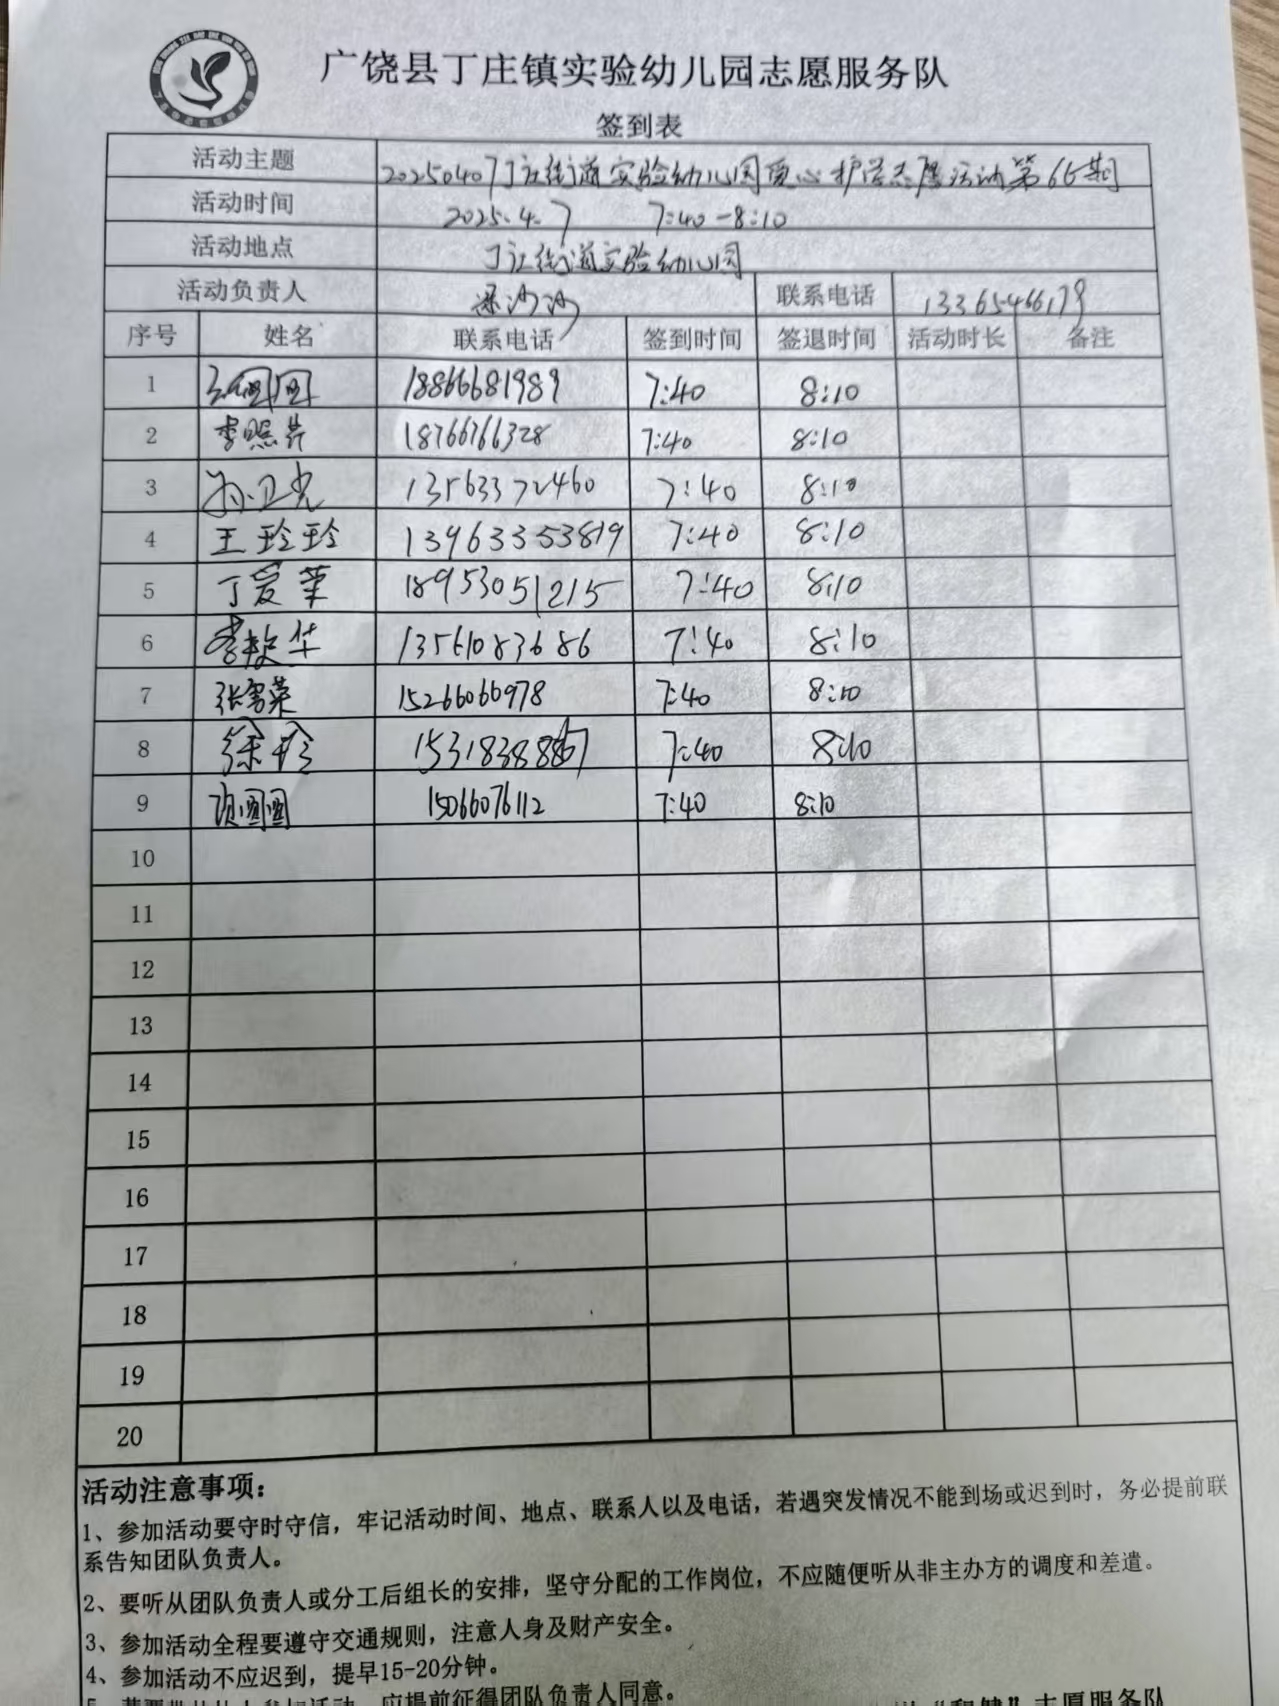 广饶县丁庄镇实验幼儿园志愿服务队
签到表
活动主题 20250407丁庄街道实验幼儿园爱心护学志愿活动第66期
活动时间 2025.4.7 7:40-8:10
活动地点 丁庄街道实验幼儿园
活动负责人 梁沙沙 联系电话 13365466179
序号 姓名 联系电话 签到时间 签退时间 活动时长 备注
1 18866681989 7:40 8:10
2 李照芹 18766766328 7:40 8:10
3 孙卫光 13563372460 7:40 8:10
4 王玲玲 13963353819 7:40 8:10
5 丁爱莱 18953051215 7:40 8:10
6 李敏华 13561083686 7:40 8:10
7 张雪荣 15266060978 7:40 8:10
8 徐珍 7:40 8:10
9 项圆圆 15066076112 7:40 8:10
10
11
12
13
14
15
16
17
18
19
20
活动注意事项：
1、参加活动要守时守信，牢记活动时间、地点、联系人以及电话，若遇突发情况不能到场或迟到时，务必提前联
系告知团队负责人。
2、要听从团队负责人或分工后组长的安排，坚守分配的工作岗位，不应随便听从非主办方的调度和差遣。
3、参加活动全程要遵守交通规则，注意人身及财产安全。
4、参加活动不应迟到，提早15-20分钟。
应提前征得团队负责人同意。
志愿服务队